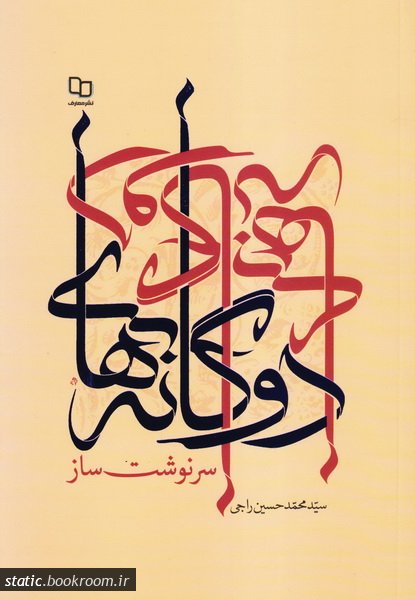 نشرمعارف
دوگانه‌های
سرنوشت ساز
سیّد محمّد حسین راجی
static.bookroom.ir